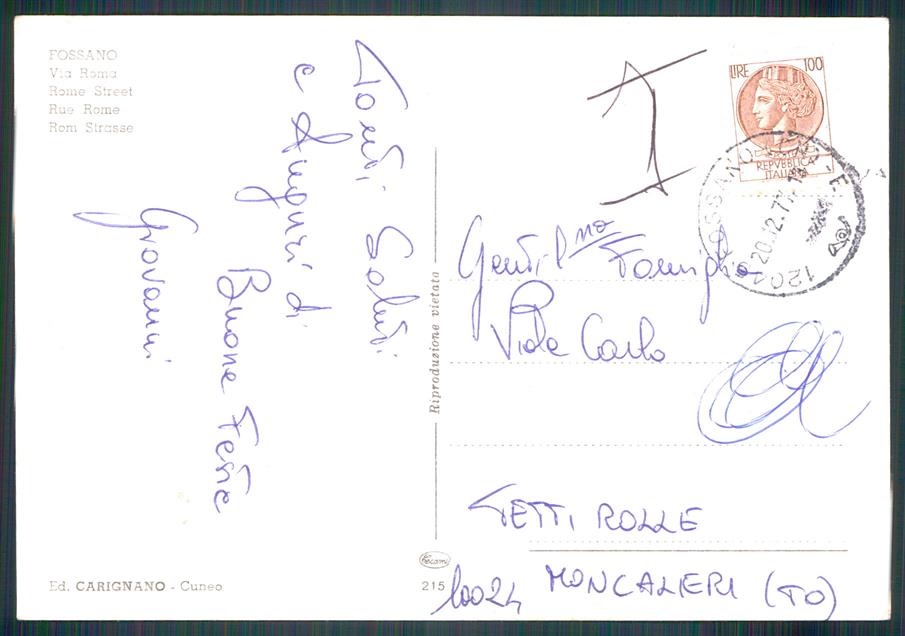 FOSSANO
Via Roma
Rome Street
Rue Rome
Rom Strasse
Tanti Saluti
e Auguri di
Buone Feste
Giovanni
Riproduzione vietata
LIRE 100
REPVBBLICA
ITALIANA
20.12.77
Gentil.ma Famiglia
Viale Carlo
TETTI ROLLE
10024 MONCALIERI (TO)
Ed. CARIGNANO - Cuneo
215